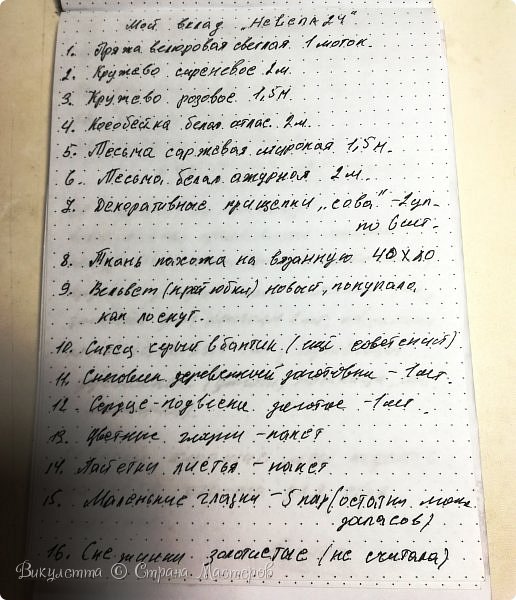 Мой вклад "Невепа 24"
1. Пряжа велюровая светлая 1 моток.
2. Кружево сиреневое 2 м.
3. Кружево розовое 1,5 м
4. Кособейка белая атлас. 2м.
5. Тесьма саржевая широкая 1,5 м.
6. Тесьма белая ажурная 2 м.
7. Декоративные прищепки "сова" - 2 уп.
по 6 шт.
8. Ткань похожа на вязанную 40х40
9. Вельвет (крой юбки) новый, покупала,
как лоскут.
10. Ситец серый в бантик (ещё советский)
11. деревянный заготовки - 1 шт.
12. Сердце-подвески золотое - 1 шт.
13. Цветные - пакет
14. Пайетки листья - пакет
15. Маленькие глазки - 5 пар (остатки моих
запасов)
16. Снежинки золотистые (не считала)
Викулетта © Страна Мастеров